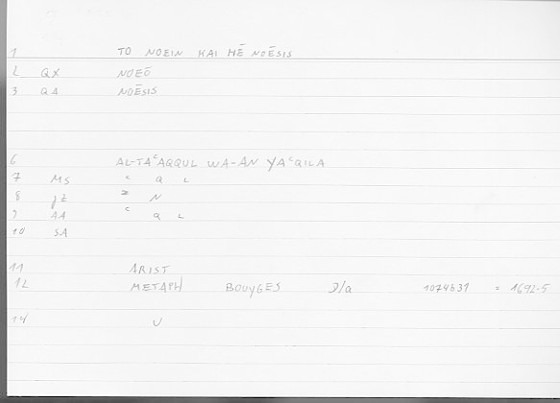 1 TO NOEIN KAI HĒ NOĒSIS
2 QX NOEŌ
3 QA NOĒSIS
6 AL-TAʿAQQUL WA-AN YAʿQILA
7 MS ʿ Q L
8 N
9 AA ʿ Q L
10 SA
11 ARIST
12 METAPH BOUYGES 1074B31 = 1692.5
14 U